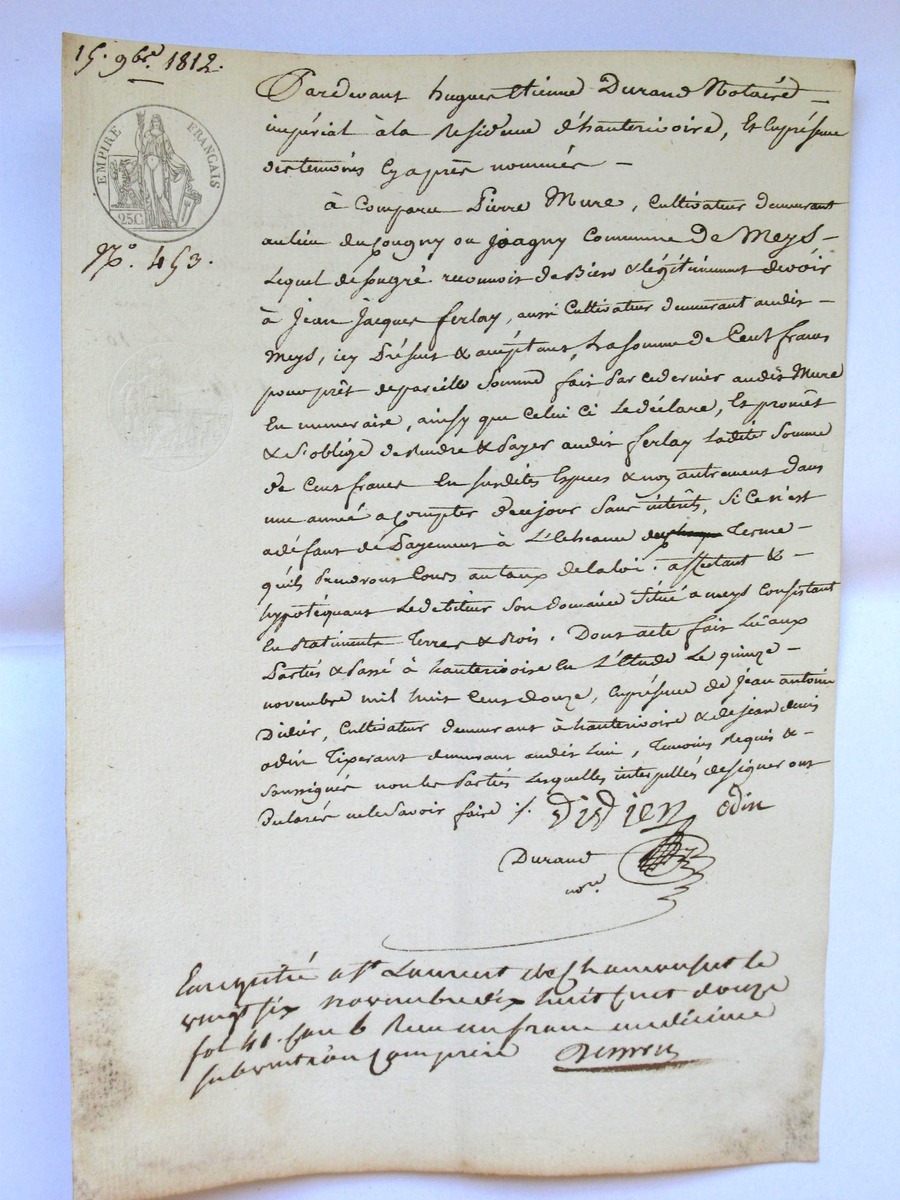 15. 9bre. 1812.
EMPIRE FRANÇAIS
25C.
No. 453.
Pardevant hugues Etienne Durand Notaire
impérial à la Residence d'hauterivoire, Et En présence
des temoins cy après nommés
à Comparu Pierre Mure, Cultivateur demeurant
au lieu du Jougny ou Joagny Commune De Meys
Lequel de son gré reconnoit de Bien & légitimement devoir
à Jean Jacques ferlay, aussi Cultivateur demeurant audit
Meys, icy Présent & acceptant, La somme de Cent francs
pour prêt de pareille Somme fait Par ce dernier audit Mure
En numeraire, ainsy que Celui Ci Le déclare, Et promêt
& S'oblige de rendre & Payer audit ferlay ladite Somme
de Cent francs En susdites Especes & non autrement dans
une année a Compter de ce jour Sans intérêts, Si Ce n'est
a défaut de Payement à L'Echeance du Terme
qu'ils Prendront Cours au taux de la loi. affectant &
hypotéquant Le debiteur Son domaine Situé a meys Consistant
En Batiments Terres & Bois. Dont acte fait Lu aux
Parties & Passé à hauterivoire En L'étude Le quinze
novembre mil huit Cent douze, En présence de Jean antoine
Didier, Cultivateur demeurant à hauterivoire & de jean denis
odin Tixerant demeurant audit Lieu, Temoins Requis &
Soussignés non les Parties Lesquelles interpellés de signer ont
Déclarés ne le Savoir faire ./.
Didier odin
Durand
nore.
Enregistré a St Laurent de Chamousset le
vingt six novembre dix huit Cent douze
fol 41. Case 6 Reçu un franc un decime
subvention Comprise